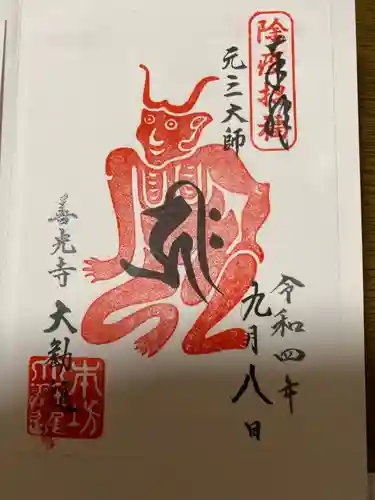 奉拝
除疫招福
元三大師
令和四年
九月八日
善光寺
大勧進